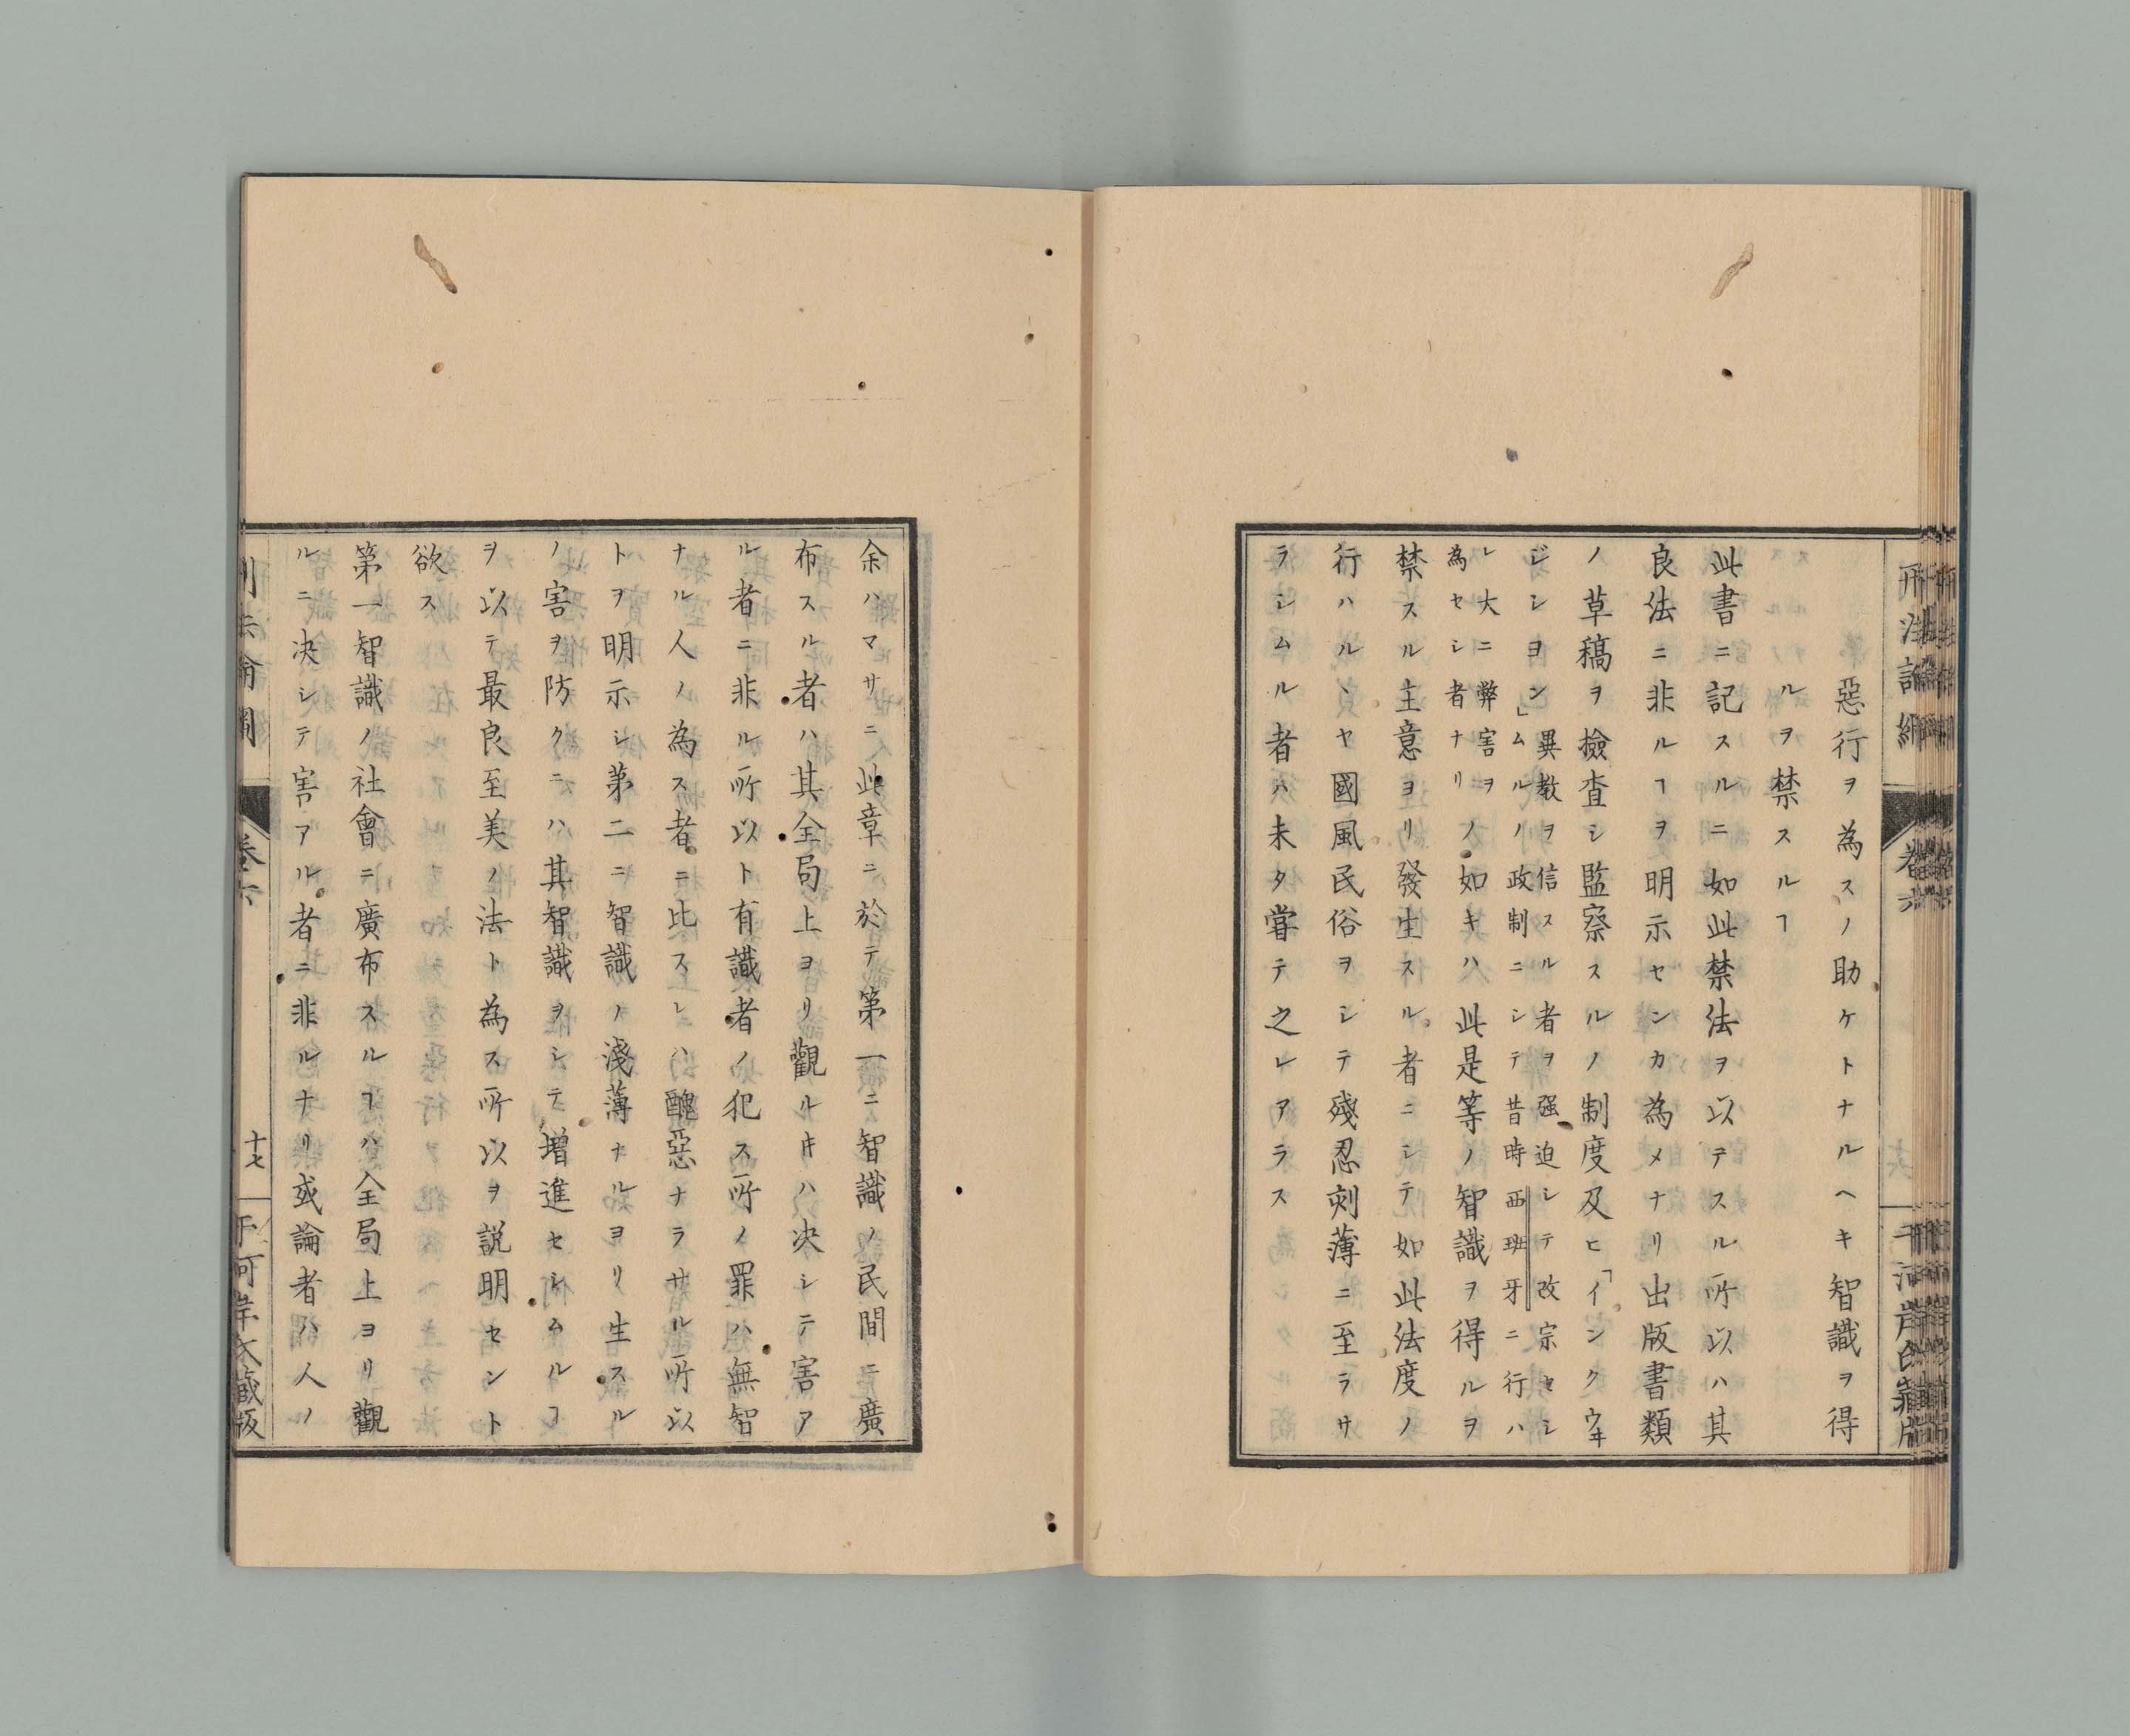 惡行ヲ為スノ助ケトナルヘキ智識ヲ得
ルヲ禁スルヿ
此書ニ記スルニ如此禁法ヲ以テスル所以ハ其
良法ニ非ルヿヲ明示センカ為メナリ出版書類
ノ草稿ヲ撿査シ監察スルノ制度及ヒ「インクウヰ
ジシヨン」異教ヲ信スル者ヲ强迫シテ改宗セシ
ムルノ政制ニシテ昔時西班牙ニ行ハ
レ大ニ弊害ヲ
為セシ者ナリノ如キハ此是等ノ智識ヲ得ルヲ
禁スル主意ヨリ發生スル者ニシテ如此法度ノ
行ハルヽヤ國風民俗ヲシテ殘忍刻薄ニ至ラサ
ラシムル者ハ未タ甞テ之レアラス
余ハマサニ此章ニ於テ第一ニ智識ノ民間ニ廣
布スル者ハ其全局上ヨリ觀ルキハ决シテ害ア
ル者ニ非ル所以ト有識者ノ犯ス所ノ罪ハ無智
ナル人ノ為ス者ニ比スレハ醜惡ナラサル所以
トヲ明示シ第二ニ智識ノ淺薄ナルヨリ生スル
ノ害ヲ防クニハ其智識ヲシテ増進セシムルヿ
ヲ以テ最良至美ノ法ト為ス所以ヲ説明セント
欲ス
第一智識ノ社會ニ廣布スルヿハ全局上ヨリ觀
ルニ决シテ害アル者ニ非ルナリ或論者ハ人ノ
卷六
十七